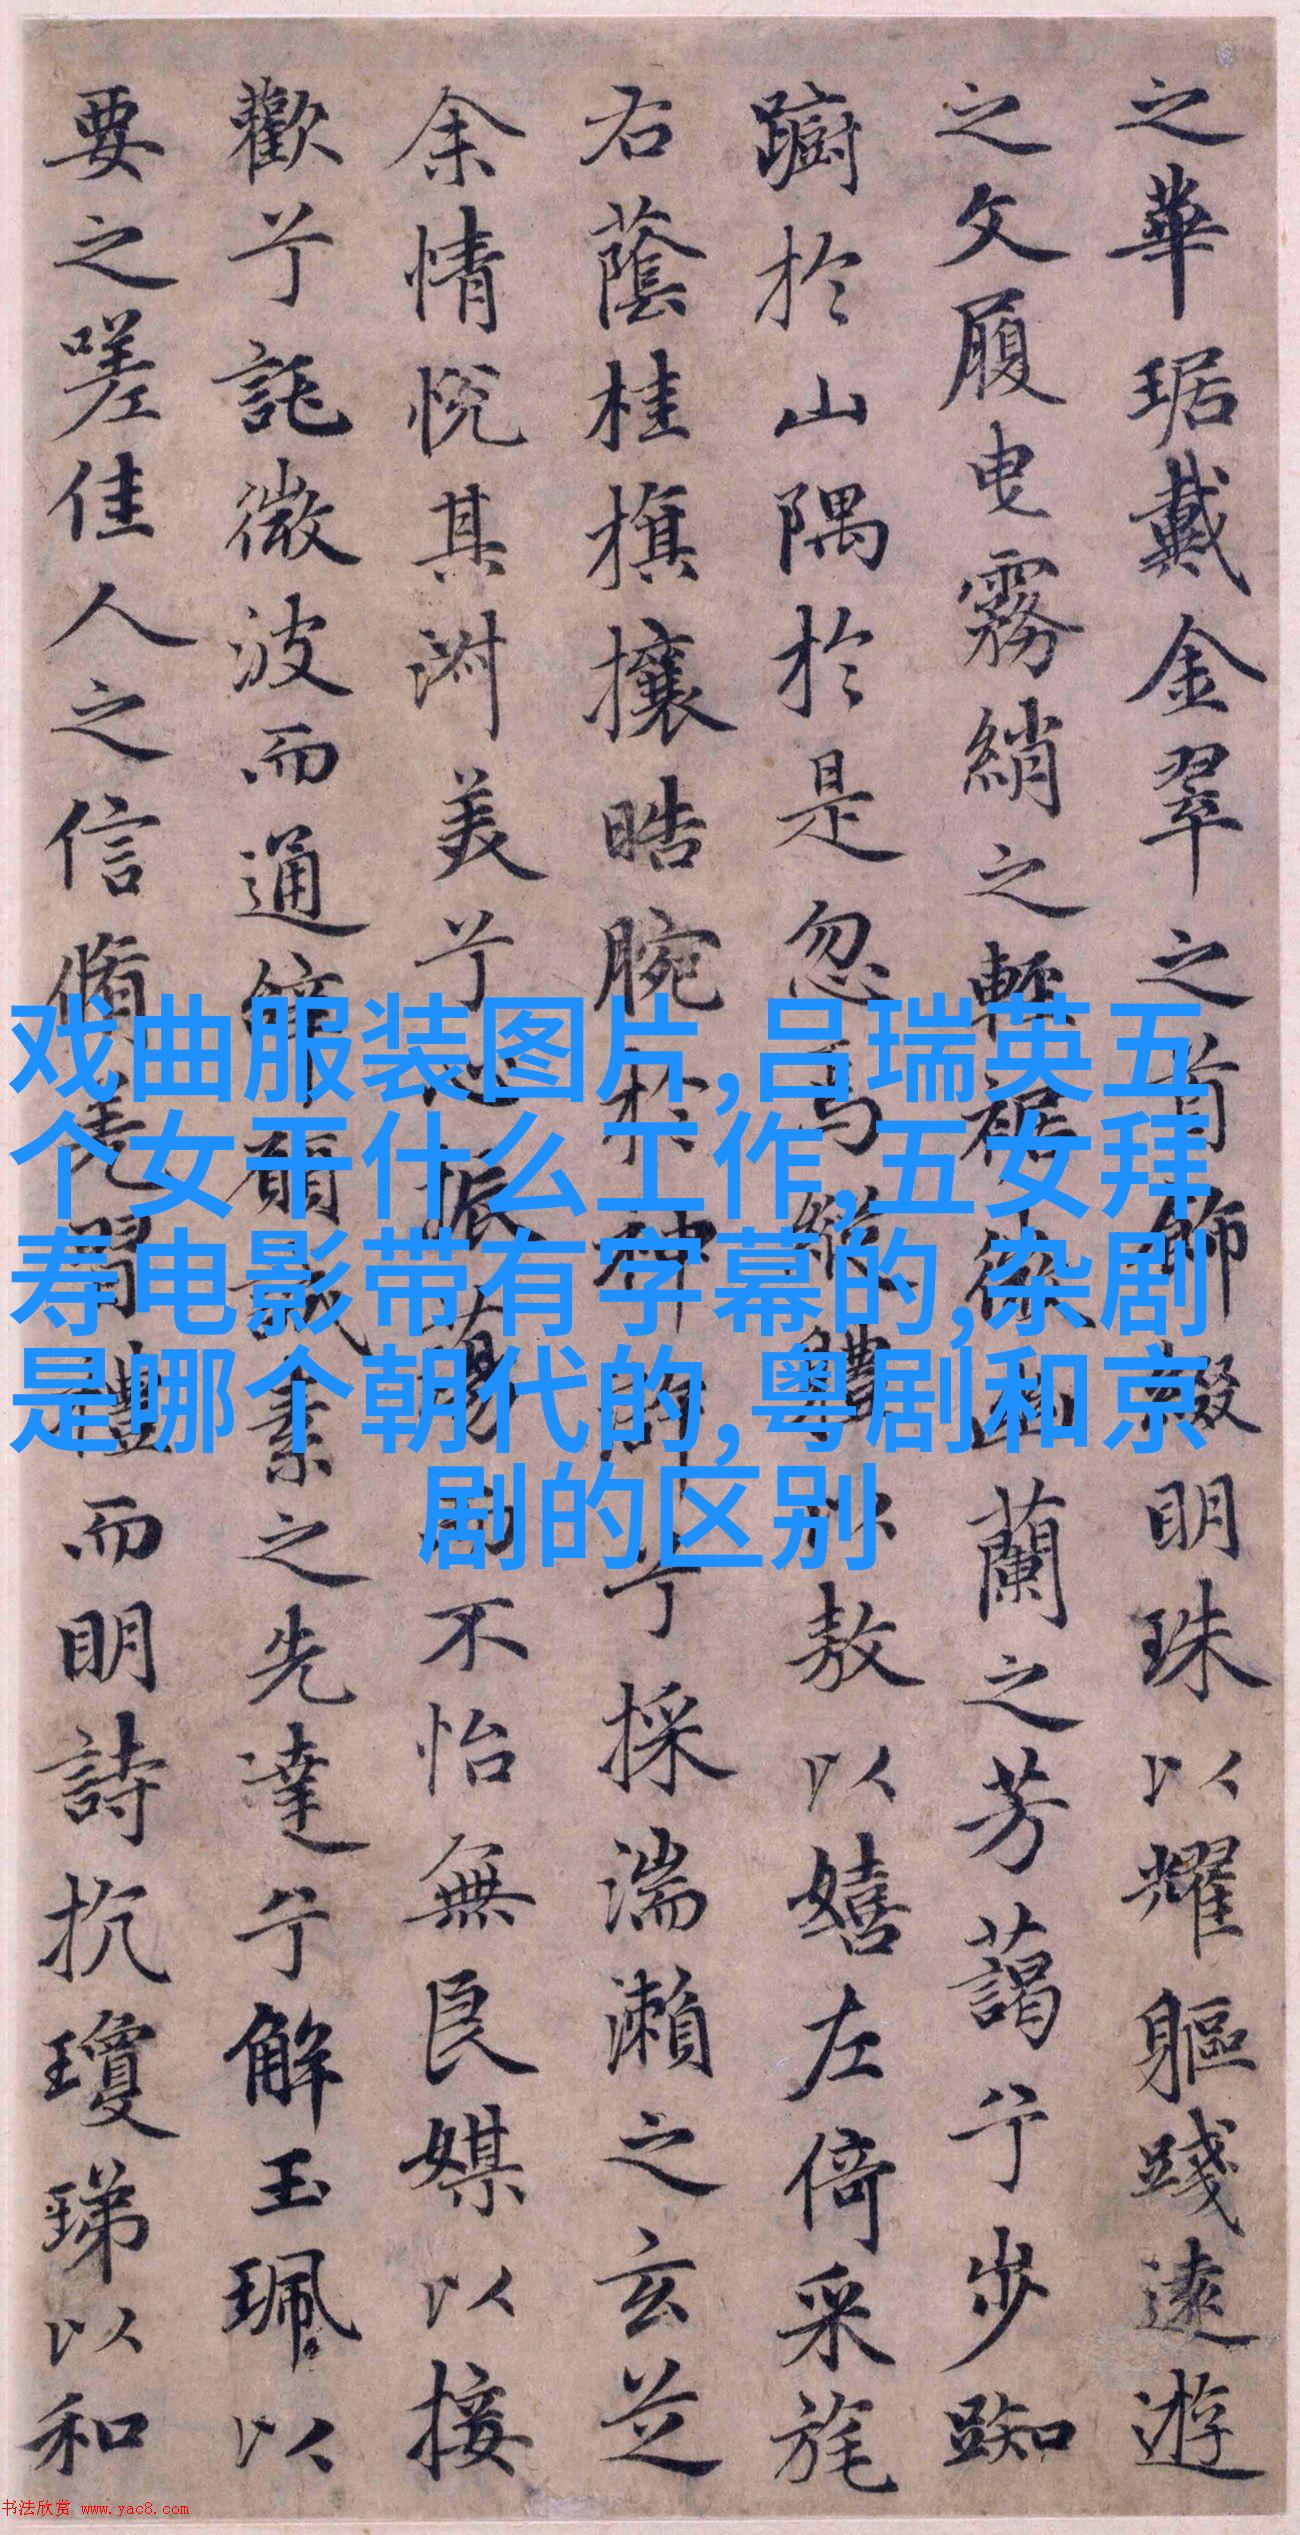 之華琚戴金翠之首飾綴明珠以耀軀踐遠遊
之文履曳霧綃之輕裾微幽蘭之芳藹兮步踟
躕於山隅於是忽焉縱體以敖以嬉左倚采旄
右蔭桂旗攘皓腕於神滸兮採湍瀨之玄芝
余情悅其淑美兮心振蕩而不怡無良媒以接
歡兮託微波而通辭願誠素之先達兮解玉珮以
要之嗟佳人之信脩羌習禮而明詩抗瓊珶以和
戏曲服装图片,吕瑞英五
个女干什么工作,五女拜
寿电影带有字幕的,杂剧
是哪个朝代的,粤剧和京
剧的区别
书法欣赏 www.yac8.com